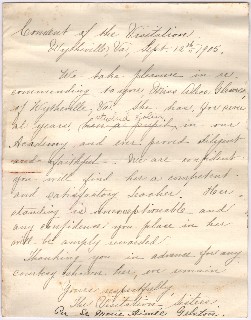 Convent of the Visitation
Wytheville, Va., Sept. 12th 1905.
We take pleasure in re
commending to you Miss
of Wytheville, Va. She has, for
years, been a pupil in our
Academy and ever proved diligent
and faithful. We are confident
you will find her a competent
and satisfactory teacher. Her
standing is unexceptionable and
any confidence you place in her
will be amply rewarded.
Thanking you in advance for any
courtesy shown her, we remain
Yours respectfully,
The Visitation Sisters
Per Sr. Marie